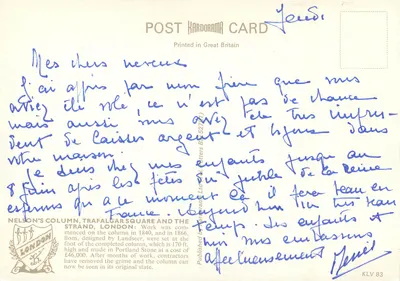 POST KARDORAMA CARD
Printed in Great Britain
Jeudi
Mes chers neveux
J'ai appris par mon frère que vous
aviez été volé, ce n'est pas de chance
mais aussi vous avez été très impru-
dent de laisser argent et bijoux dans
votre maison.
Je suis chez mes enfants jusqu'au
8 juin après les fêtes du jubilé de la reine
espérons qu'à ce moment là il fera beau en
France. Aujourd'hui un très beau
temps. Les enfants et
moi vous embrassons
affectueusement
NELSON'S COLUMN, TRAFALGAR SQUARE AND THE
STRAND, LONDON: Work was com-
menced on the column in 1840, and in 1868,
the lions, designed by Landseer, were set at the
foot of the completed column, which is 170 ft.
high and made in Portland Stone at a cost of
£46,000. After months of work, contractors
have removed the grime and the column can
now be seen in its original state.
LONDON
KLV 83